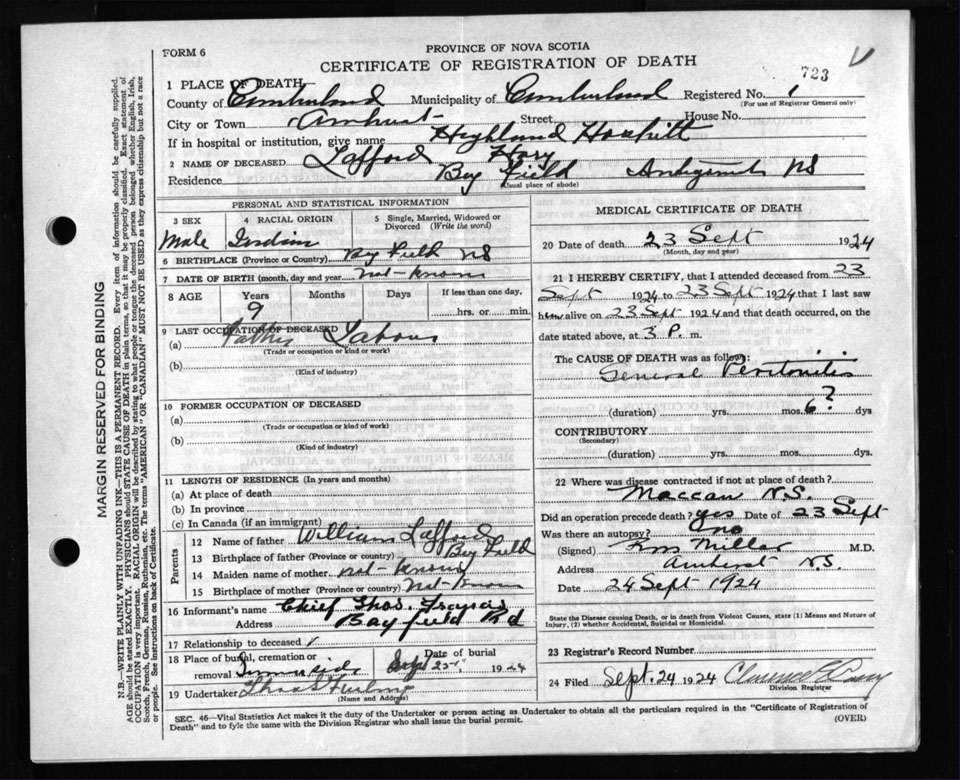 FORM 6
PROVINCE OF NOVA SCOTIA
CERTIFICATE OF REGISTRATION OF DEATH
723
1 PLACE OF DEATH
County of Cumberland Municipality of Cumberland Registered No. 1
(For use of Registrar General only)
City or Town Amherst Street House No.
If in hospital or institution, give name Highland Hospital
2 NAME OF DECEASED Lafford
Residence Bay Field Antigonish NS
(Usual place of abode)
PERSONAL AND STATISTICAL INFORMATION
3 SEX
4 RACIAL ORIGIN
5 Single, Married, Widowed or Divorced (Write the word)
Male Indian
6 BIRTHPLACE (Province or Country) Bay Field NS
7 DATE OF BIRTH (month, day and year) Not-Known
8 AGE Years Months Days If less than one day,
9 hrs. or min.
9 LAST OCCUPATION OF DECEASED
(a) Father Labour
(Trade or occupation or kind or work)
(b)
(Kind of industry)
10 FORMER OCCUPATION OF DECEASED
(a)
(Trade or occupation or kind of work)
(b)
(Kind of industry)
11 LENGTH OF RESIDENCE (In years and months)
(a) At place of death
(b) In province
(c) In Canada (if an immigrant)
Parents
12 Name of father William Lafford
13 Birthplace of father (Province or country) Bay Field
14 Maiden name of mother not-known
15 Birthplace of mother (Province or country) Not-Known
16 Informant's name Chief Thos.
Address Bayfield Rd
17 Relationship to deceased
18 Place of burial, cremation or removal Date of burial
Sept 25 1924
19 Undertaker
(Name and Address)
MEDICAL CERTIFICATE OF DEATH
20 Date of death 23 Sept 1924
(Month, day and year)
21 I HEREBY CERTIFY, that I attended deceased from 23
Sept 1924 to 23 Sept 1924 that I last saw
him alive on 23 Sept 1924 and that death occurred, on the
date stated above, at 3 P. m.
The CAUSE OF DEATH was as follows:
General Peritonitis
(duration) yrs. mos. 6? dys
CONTRIBUTORY
(Secondary)
(duration) yrs. mos. dys.
22 Where was disease contracted if not at place of death?
Maccan N.S.
Did an operation precede death? yes Date of 23 Sept
Was there an autopsy? no
(Signed) Miller M.D.
Address Amherst N.S.
Date 24 Sept 1924
State the Disease causing Death, or in death from Violent Causes, state (1) Means and Nature of Injury, (2) whether Accidental, Suicidal or Homicidal.
23 Registrar's Record Number
24 Filed Sept. 24 1924 Clarence
Division Registrar
SEC. 46—Vital Statistics Act makes it the duty of the Undertaker or person acting as Undertaker to obtain all the particulars required in the "Certificate of Registration of
Death" and to fyle the same with the Division Registrar who shall issue the burial permit.
(OVER)
MARGIN RESERVED FOR BINDING
N.B.—WRITE PLAINLY WITH UNFADING INK—THIS IS A PERMANENT RECORD. Every item of information should be carefully supplied.
AGE should be stated EXACTLY. PHYSICIANS should STATE CAUSE OF DEATH in plain terms, so that it may be properly classified. Exact statement of
OCCUPATION is very important. RACIAL ORIGIN will be described by stating to what people or tongue the deceased person belonged whether English, Irish,
Scotch, French, German, Russian, Ruthenian, etc. The terms "AMERICAN" OR "CANADIAN" MUST NOT BE USED as they express citizenship but not a race
or people. See instructions on back of Certificate.